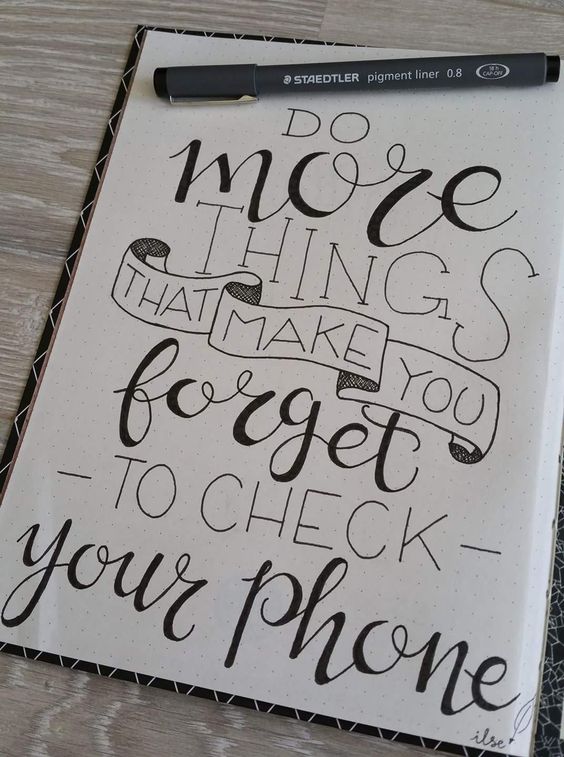 STAEDTLER pigment liner 0.8 18 h CAP-OFF
DO
more
THINGS
THAT MAKE YOU
forget
- TO CHECK -
your phone
ilse